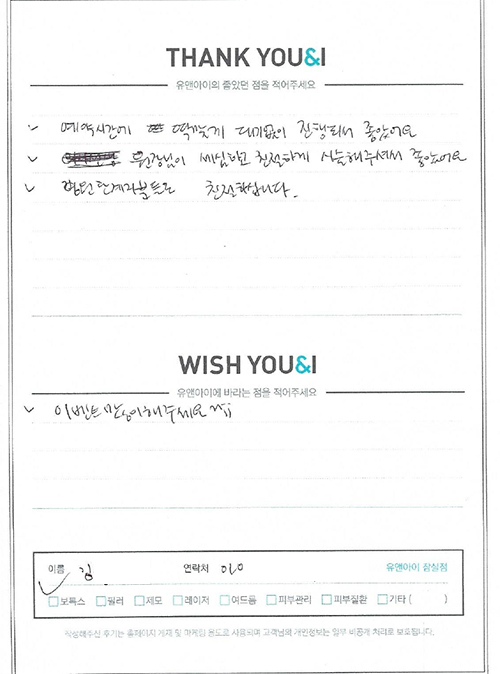 THANK YOU&I
유앤아이의 좋았던 점을 적어주세요
✓ 예약시간에 딱맞게 대기없이 진행되서 좋았어요
✓ 원장님이 세심하고 친절하게 시술해주셔서 좋았어요
✓ 병원관계자분들도 친절하십니다.
WISH YOU&I
유앤아이에 바라는 점을 적어주세요
✓ 이벤트 많이해주세요 ^^
이름 김 연락처 010 유앤아이 잠실점
보톡스 필러 제모 레이저 여드름 피부관리 피부질환 기타 ( )
작성해주신 후기는 홈페이지 기재 및 마케팅 용도로 사용되며 고객님의 개인정보는 일부 비공개 처리로 보호됩니다.